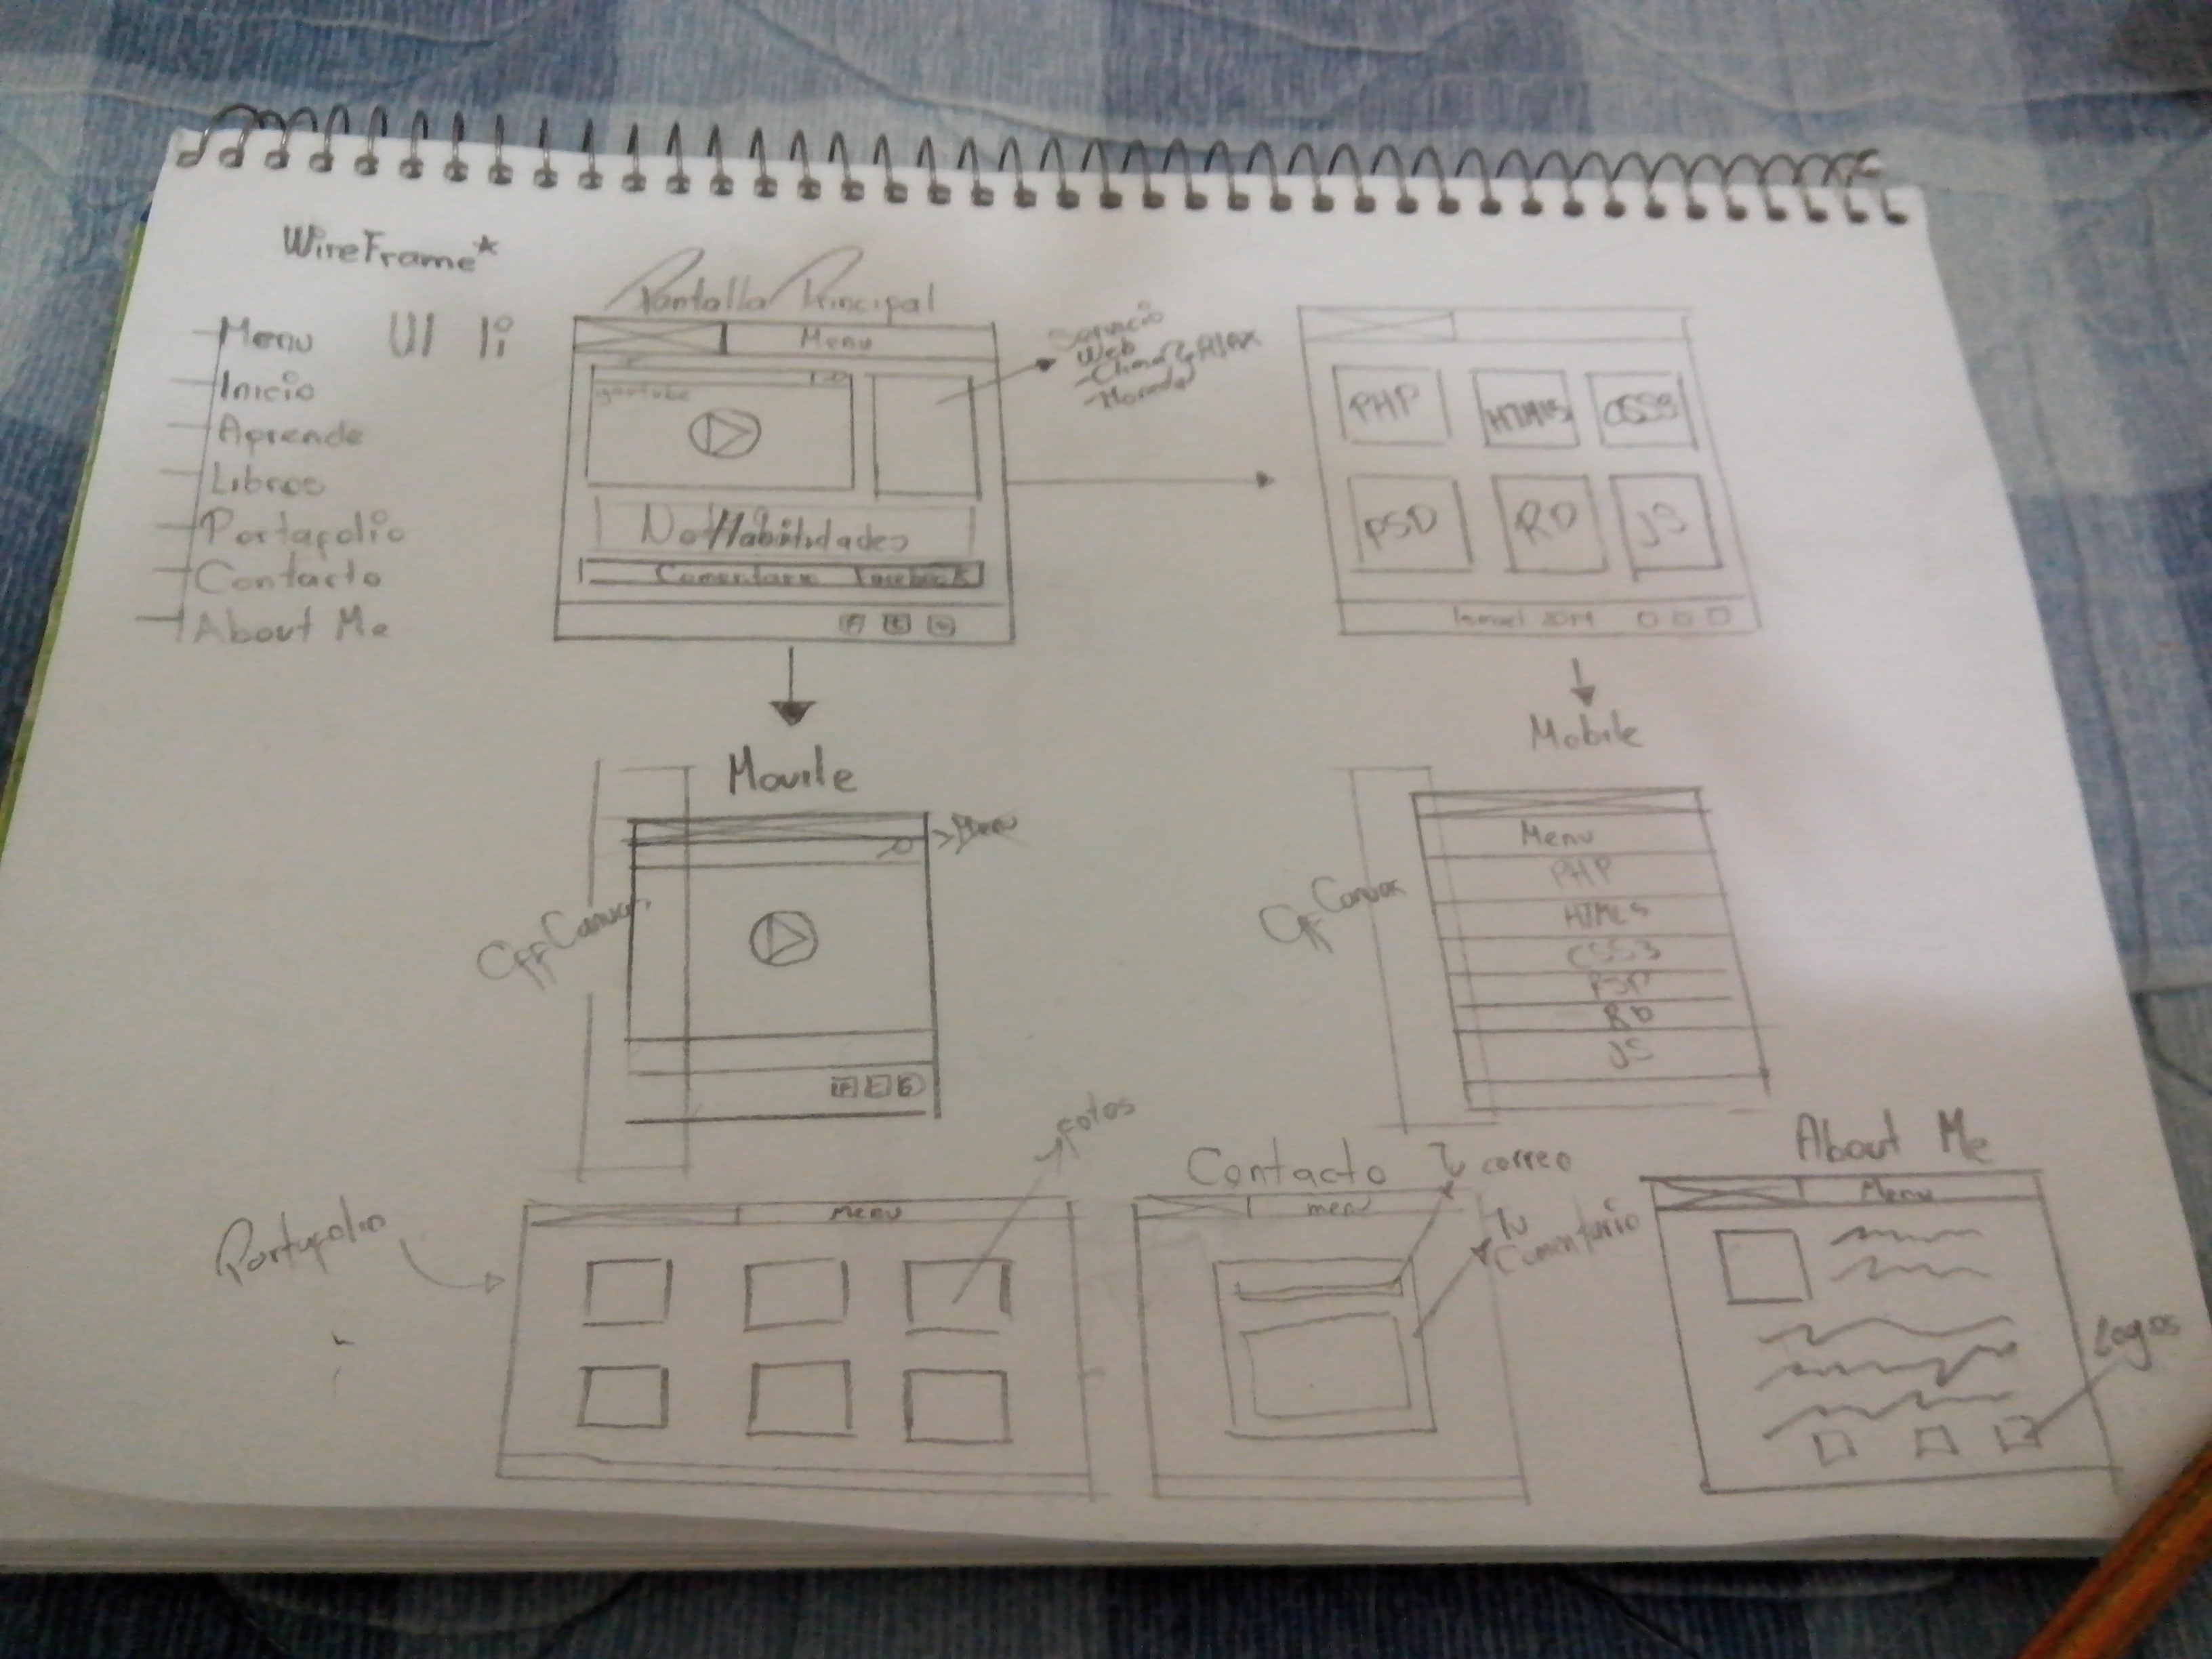 WireFrame*
Menu UI li
Inicio
Aprende
Libros
Portafolio
Contacto
About Me
Pantalla Principal
Menu
youtube
Servicio
Web
-Clima AJAX
Comentario Facebook
PHP HTML5 CSS3
PSD RD JS
Ismael 2014
Movile
Menu
Off Canvas
Mobile
Off Canvas
Menu
PHP
HTML5
CSS3
PSD
RD
JS
Portafolio
Fotos
Menu
Contacto
Tu correo
menu
Tu
Comentario
About Me
Menu
Logos